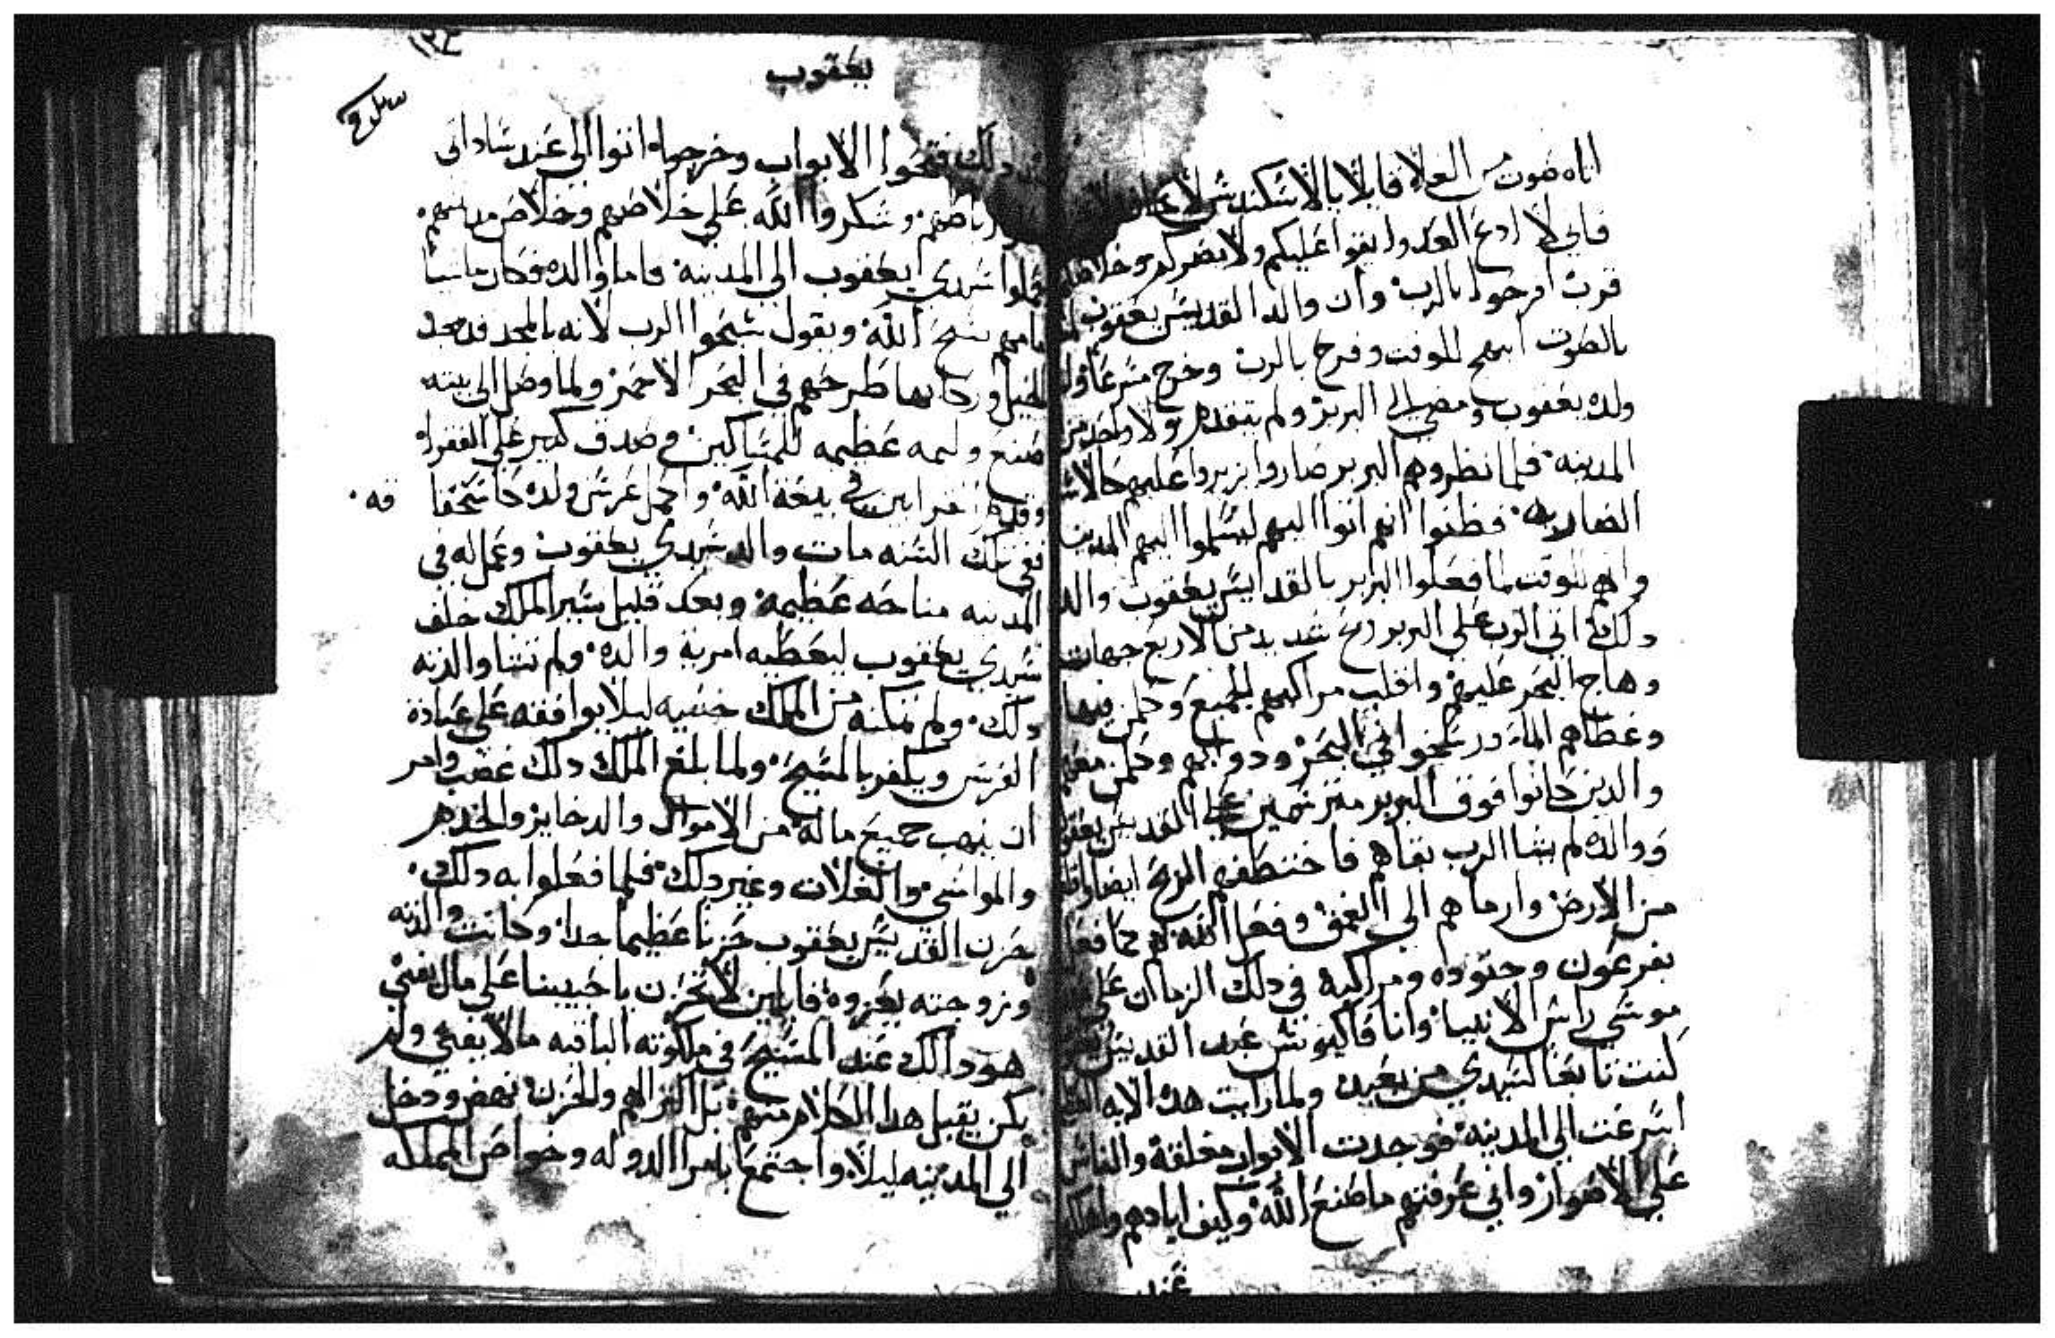 اتاه صوت من العلا قايلا يا الاسكندس لا تخاف
فاني لا ادع العدوا يقوا عليكم ولا يضركم وخلاصكم
قرب افرحوا بالرب وان والد القديس يعقوب لما
بالصوت ابتهج للوقت وفرح بالرب وخرج مسرعا وا
ولده يعقوب ومضي الي البربر ولم يتقدمهم ولا واحد من
المدينه فلما نظروهم البربر صاروا يزيروا عليهم كالاسد
الضاريه فظنوا انهم اتوا اليهم ليسلموا اليهم المدينه
واهم للوقت لما فعلوا البربر بالقديس يعقوب والد
دلك اتي الرب علي البربر ريح شديد من الاربع جهات
وهاج البحر عليهم واقلب مراكبهم للجميع وكلمن فيها
وغطاهم الما ورسخوا في البحر ودوابهم وكلمن معهم
والدين كانوا فوق البربر متزحمين علي القديس يعقوب
ووالده لم يشا الرب بقاهم فاختطفهم الريح ايضا واقلع
من الارض وارماهم الي العمق وفعل الله بهم كما فعل
بفرعون وجنوده ومراكبه في دلك الزمان علي يد
موسي راس الانبيا وانا فاكيوس عبد القديس يعقوب
كنت تابعا لسيدي من بعيد ولما رايت هده الايه العظيمه
اسرعت الي المدينه فوجدت الابواب مغلقة والناس
علي الاصوار واني عرفتهم ما صنع الله وكيف ابادهم واهلك
عند
١٣٤
يعقوب
عند دلك فتحوا الابواب وخرجوا اتوا الي عند ساداتي
وشكروا الله علي خلاصهم وخلاص مدينتهم
فحملوا سيدي يعقوب الي المدينه فاما والده فكان ماشيا
امامهم يسبح الله ويقول سبحوا الرب لانه بالمجد قد تمجد
الخيل وركابها طرحهم في البحر الاحمر ولما وصل الي بيته
صنع وليمه عظيمه للمساكين وصدق كتير علي الفقرا
وقدم قرابين في بيعة الله واكمل عرس ولده كاستحقا قه
ففي تلك السنه مات والد سيدي يعقوب وعمل له في
المدينه مناحه عظيمه وبعد قليل سير الملك خلف
سيدي يعقوب ليعطيه امرية والده ولم تشا والدته
دلك ولم تمكنه من الملك خشيه ليلا يوافقه علي عبادة
الفرس ويكفر بالمسيح ولما بلغ الملك دلك غضب وامر
ان ينهب جميع ماله من الاموال والدخاير والجدهر
والمواشي والغلات وغير دلك فلما فعلوا به دلك
حزن القديس يعقوب حزنا عظيما جدا وكانت والدته
وزوجته يعزوه قايلين لا تحزن يا حبيبنا علي مال يفني
هودا لك عند المسيح في ملكوته الباقيه مالا يفني ولم
يكن يقبل هدا الكلام منهم بل التزم الهم والحزن نهض ودخل
الي المدينه ليلا واجتمع بامرا الدوله وخواص المملكه